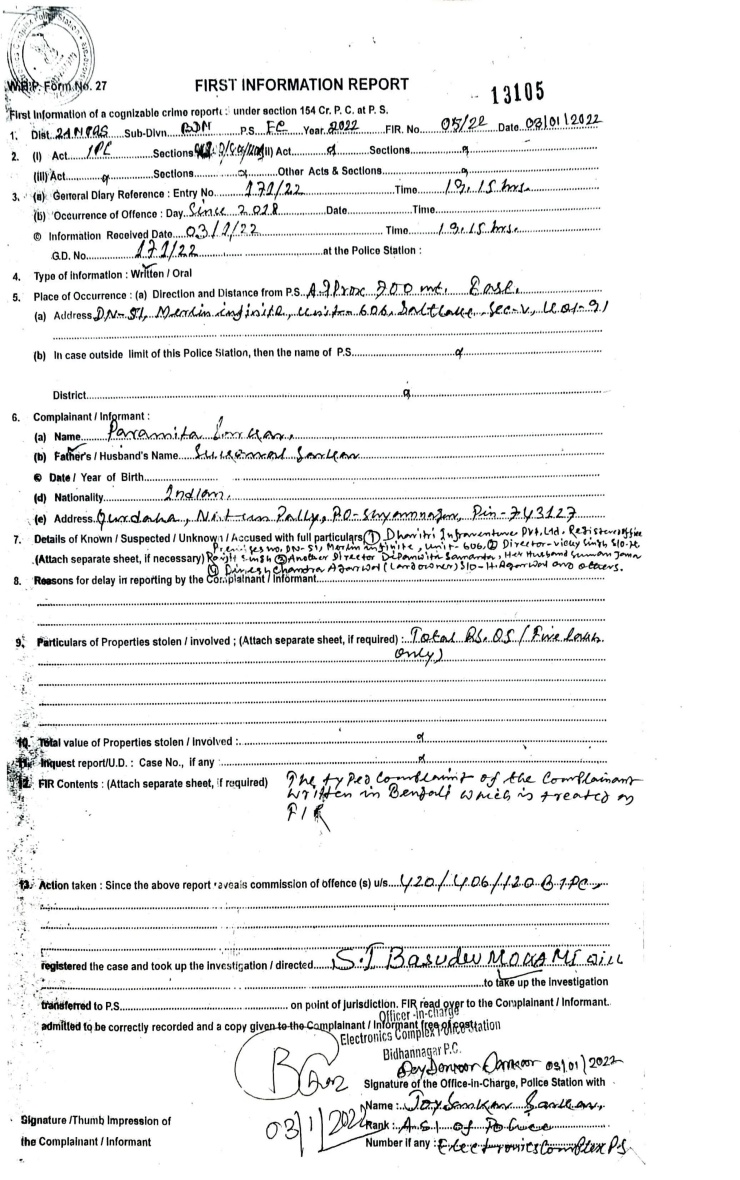 W.B.P. Form No. 27
FIRST INFORMATION REPORT
13105
First Information of a cognizable crime reports : under section 154 Cr. P. C. at P. S.
1. Dist. 24 N PGS Sub-Divn. BDN P.S. EC Year 2022 FIR. No. 05/22 Date 03/01/2022
2. (I) Act IPC Sections (II) Act Sections
(III) Act Sections Other Acts & Sections
3. (a) General Diary Reference : Entry No. 171/22 Time 19.15 hrs.
(b) Occurrence of Offence : Day Since 2018 Date Time
© Information Received Date 03/1/22 Time 19.15 hrs.
G.D. No. 171/22 at the Police Station :
4. Type of information : Written / Oral
5. Place of Occurrence : (a) Direction and Distance from P.S. Approx 700 mt. East.
(a) Address DN-51, Merlin infinite, unit-606, Saltlake, Sec-V, Kol-91
(b) In case outside limit of this Police Station, then the name of P.S.
District
6. Complainant / Informant :
(a) Name Paramita Sarkar,
(b) Father's / Husband's Name Sukomal Sarkar
© Date / Year of Birth
(d) Nationality Indian.
(e) Address Gurdaha, Natun Pally, PO-Shyamnagar, Pin-743127
7. Details of Known / Suspected / Unknown / Accused with full particulars ① Dharitri Infraventure Pvt. Ltd, Registered office
Premises no, DN-51, Merlin infinite, Unit-606, ② Director-Vicky Singh, S/O-
(Attach separate sheet, if necessary) Ranjit Singh ③ Another Director Dipanwita Samanta, Her Husband Suman Jana
④ Dinesh Chandra Agarwal (Landowner) S/O-H. Agarwal and others.
8. Reasons for delay in reporting by the Complainant / Informant
9. Particulars of Properties stolen / involved ; (Attach separate sheet, if required) : Total Rs. 05 / Five lakhs
only)
10. Total value of Properties stolen / Involved :
11. Inquest report/U.D. : Case No., if any :
12. FIR Contents : (Attach separate sheet, if required) The typed complaint of the Complainant
written in Bengali which is treated as
FIR
13. Action taken : Since the above report reveals commission of offence (s) u/s. 420/406/120B IPC,
registered the case and took up the investigation / directed S.I Basudev
to take up the Investigation
transferred to P.S. on point of jurisdiction. FIR read over to the Complainant / Informant.
admitted to be correctly recorded and a copy given to the Complainant / Informant free of cost.
Officer-in-charge
Electronics Complex Police Station
Bidhannagar P.C.
03/01/2022
03/1/2022
Signature of the Office-in-Charge, Police Station with
Name : Joy Sankar Sarkar,
Rank : A.S.I of Police
Number if any : Electronics Complex PS
Signature /Thumb Impression of
the Complainant / Informant